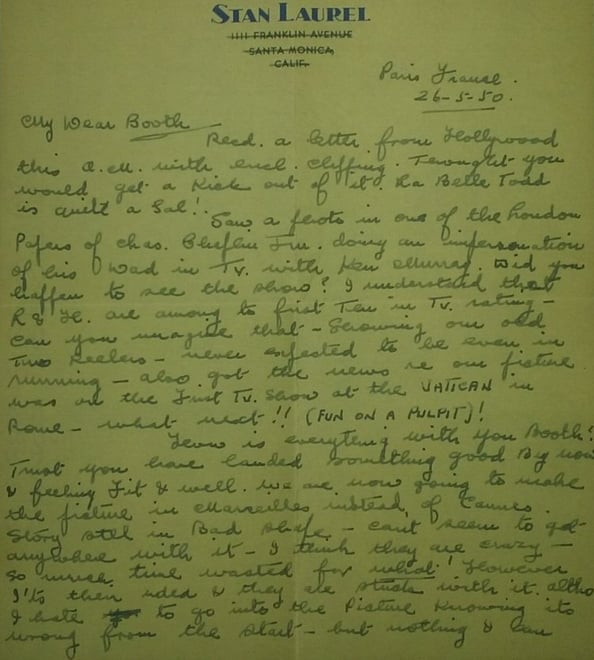 STAN LAUREL
1111 FRANKLIN AVENUE
SANTA MONICA,
CALIF.
Paris France.
26-5-50.
My Dear Booth
Recd. a letter from Hollywood
this a.m. with encl. clipping. Thought you
would get a Kick out of it. La Belle Todd
is quite a Gal!.
Saw a photo in one of the London
Papers of Chas. Chaplin Jnr. doing an impersonation
of his Dad in Tv. with Ken Murray. Did you
happen to see the show? I understand that
L & H. are among to first Ten in Tv. rating -
can you imagine that - Showing our old
Two Reelers - never expected to be even in
running - also got the news re our picture
was on the First Tv. Show at the VATICAN in
Rome - what next!! (FUN ON A PULPIT)!
How is everything with you Booth?
Trust you have landed something good By now
& feeling Fit & well. We are now going to make
the picture in Marseilles instead of Cannes.
Story still in Bad shape - cant seem to get
anywhere with it - I think they are crazy -
so much time wasted for what! However
I'ts their & they are stuck with it. altho
I hate to go into the Picture Knowing its
wrong from the start - but nothing I can